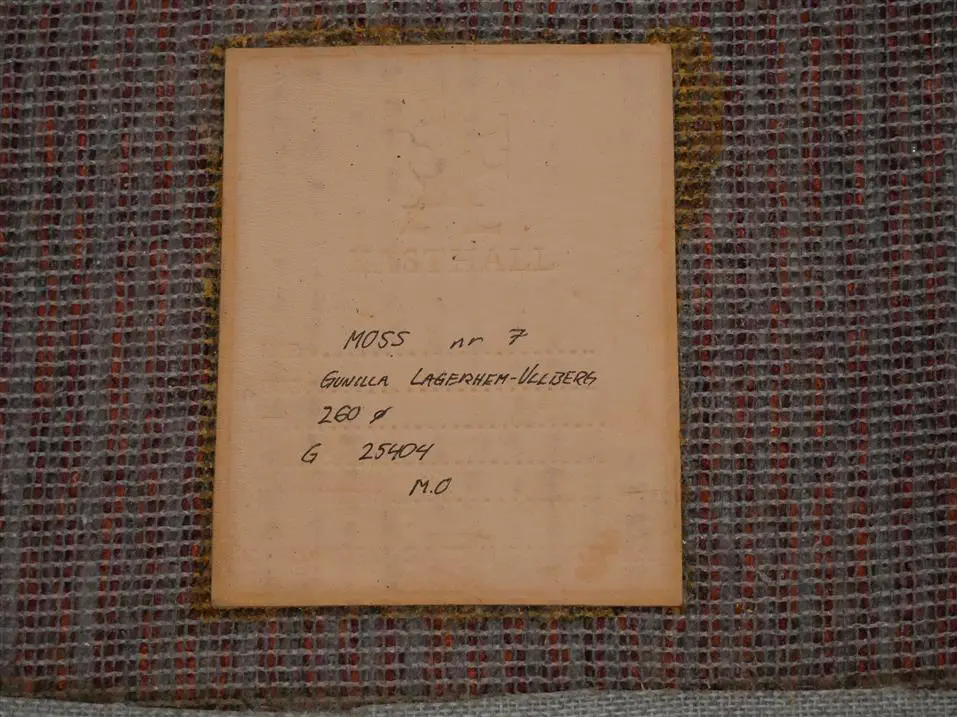 MOSS nr 7
GUNILLA LAGERHEM-ULLBERG
260 ø
G 25404
M.O
KASTHALL